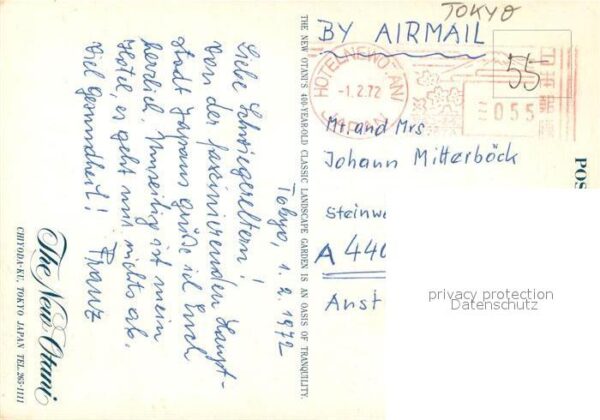 Tokyo, 1. 2. 1972
Liebe Schwiegereltern!
Von der faszinierenden Haupt-
stadt Japans grüße ich Euch
herzlich. Unseitig ist mein
Hotel, es geht mir nichts ab.
Viel Gesundheit! Franz
The New Otani
CHIYODA-KU, TOKYO JAPAN TEL. 265-1111
THE NEW OTANI'S 400-YEAR-OLD CLASSIC LANDSCAPE GARDEN IS AN OASIS OF TRANQUILITY.
TOKYO
BY AIRMAIL
HOTEL NEW OTANI
-1.2.72
JAPAN
日本郵便
055
55
POS
Mr. and Mrs
Johann Mitterböck
Steinwe
A 440
Aust
privacy protection
Datenschutz